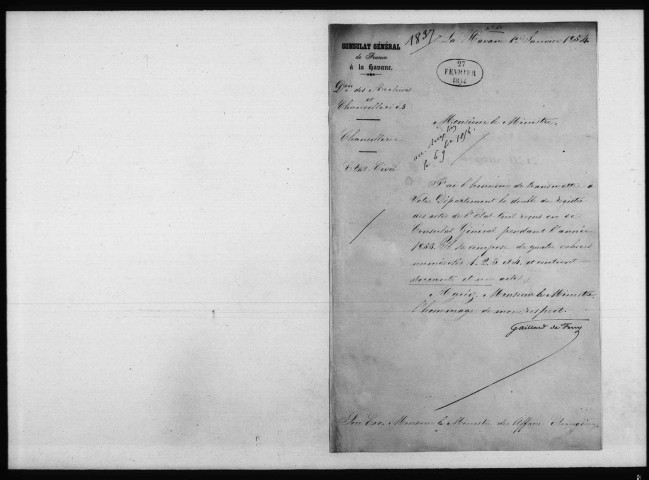 1837
La Havane 1er Janvier 1854
CONSULAT GÉNÉRAL
de France
à la Havane.
27
FEVRIER
1854
Don des Archives
et
Chancelleries
Chancellerie
Etat Civil
Monsieur le Ministre,
J'ai l'honneur de transmettre à
Votre Département le double du registre
des actes de l'Etat Civil reçus en ce
Consulat Général pendant l'année
1853. Il se compose de quatre cahiers
numérotés 1. 2. 3 et 4. et contient
soixante et un actes.
Agréez, Monsieur le Ministre,
l'hommage de mon respect.
Gaillard de Ferry
Son Exc. Monsieur le Ministre des Affaires Etrangères